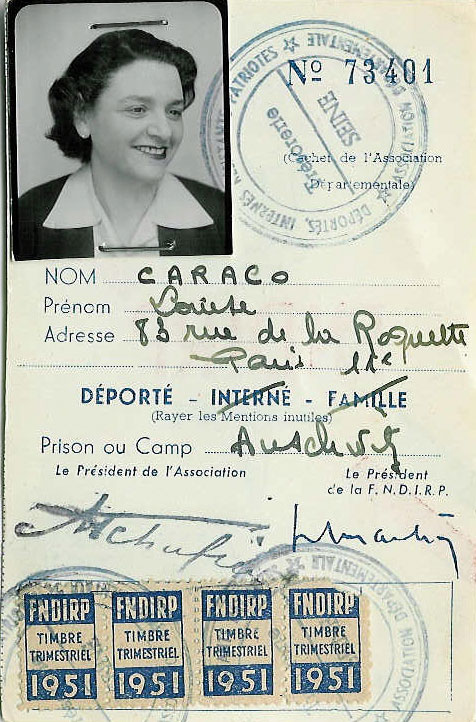 Nº 73401
(Cachet de l'Association
Départementale)
ASSOCIATION DÉPARTEMENTALE
DÉPORTÉS, INTERNÉS
PATRIOTES
SEINE
Trésorerie
NOM CARACO
Prénom Louise
Adresse 83 rue de la Roquette
Paris 11e
DÉPORTÉ - INTERNÉ - FAMILLE
(Rayer les Mentions inutiles)
Prison ou Camp Auschvitz
Le Président de l'Association
Le Président
de la F.N.D.I.R.P.
FNDIRP FNDIRP FNDIRP FNDIRP
TIMBRE TIMBRE TIMBRE TIMBRE
TRIMESTRIEL TRIMESTRIEL TRIMESTRIEL TRIMESTRIEL
1951 1951 1951 1951